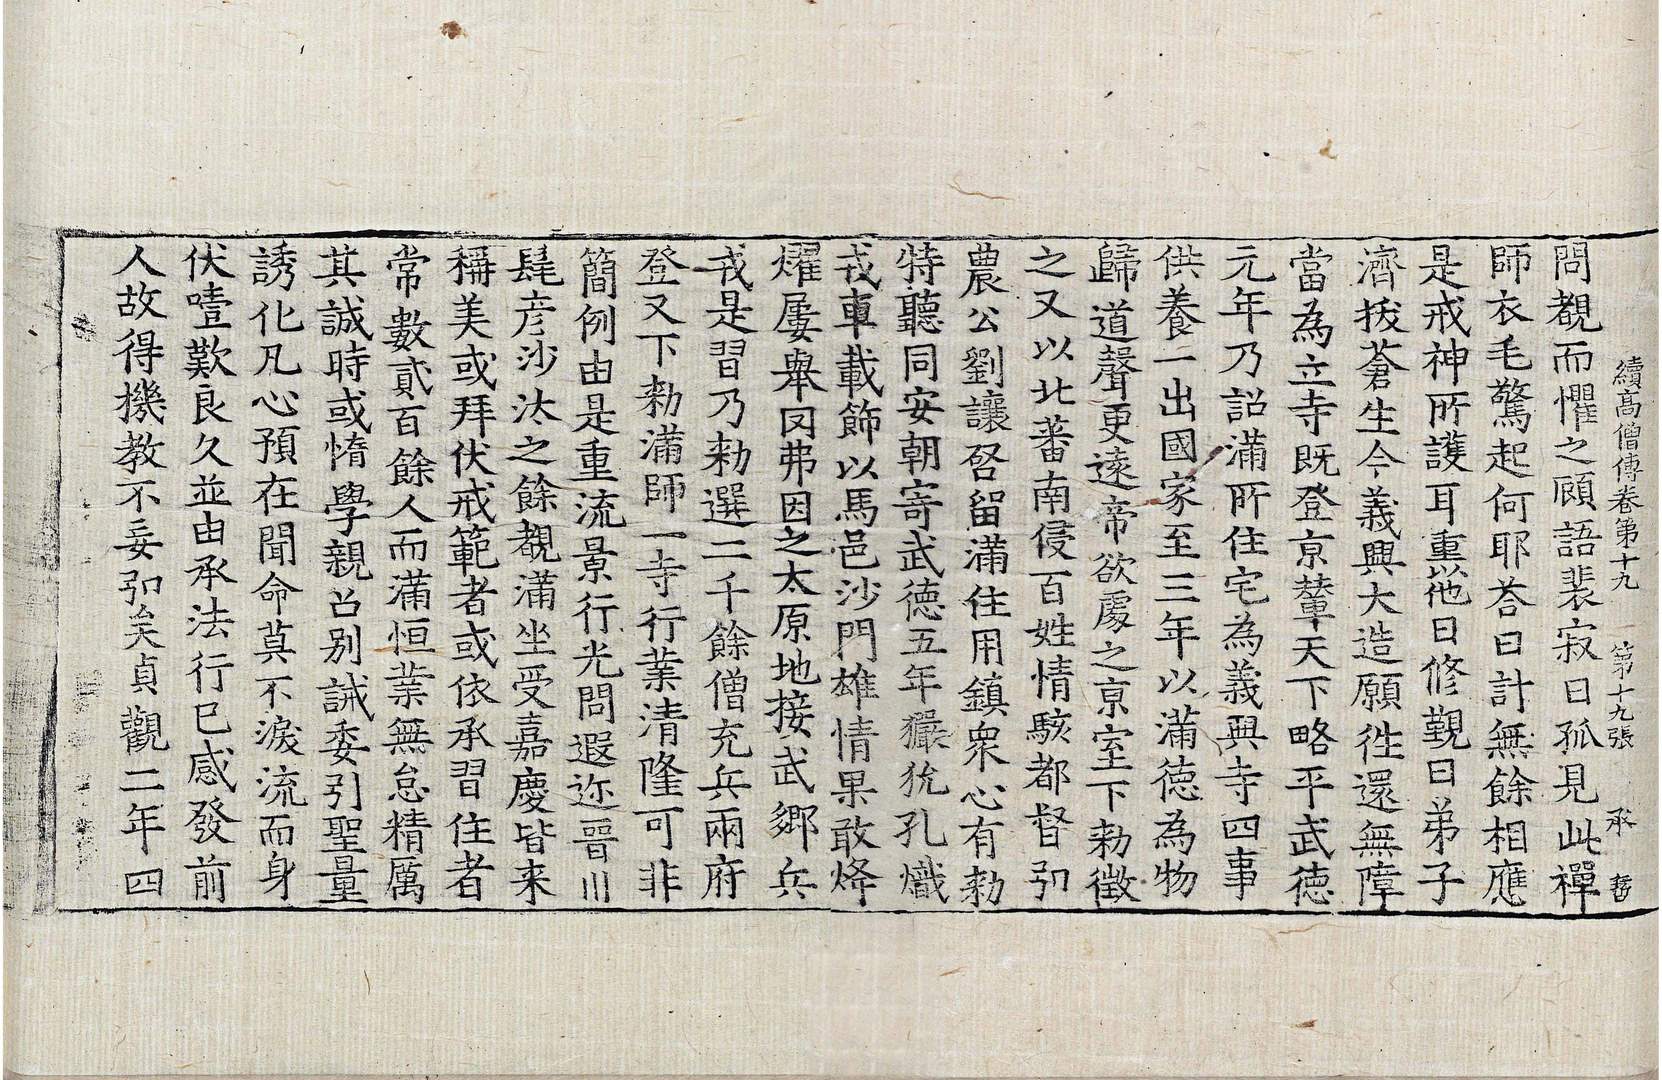 續高僧傳卷第十九 第十九張 承
問覩而懼之顧語裴寂曰孤見此禪
師衣毛驚起何耶荅曰計無餘相應
是戒神所護耳重以他日修覲曰弟子
濟拔蒼生今義興大造願往還無障
當為立寺既登京輦天下略平武德
元年乃詔滿所住宅為義興寺四事
供養一出國家至三年以滿德為物
歸道聲更遠帝欲處之京室下勑徵
之又以北蕃南侵百姓情駭都督弘
農公劉讓啓留滿住用鎮衆心有勑
特聽同安朝寄武德五年玁狁孔熾
戎車載飾以馬邑沙門雄情果敢烽
燿屢舉罔弗因之太原地接武鄉兵
戎是習乃勑選二千餘僧充兵兩府
登又下勑滿師一寺行業清隆可非
簡例由是重流景行光問遐迩晉川
髦彦沙汰之餘覩滿坐受嘉慶皆来
稱美或拜伏戒範者或依承習住者
常數貳百餘人而滿恒業無怠精厲
其誠時或惰學親召别誡委引聖量
誘化凡心預在聞命莫不淚流而身
伏噎歎良久並由承法行已感發前
人故得機教不妄弘矣貞觀二年四